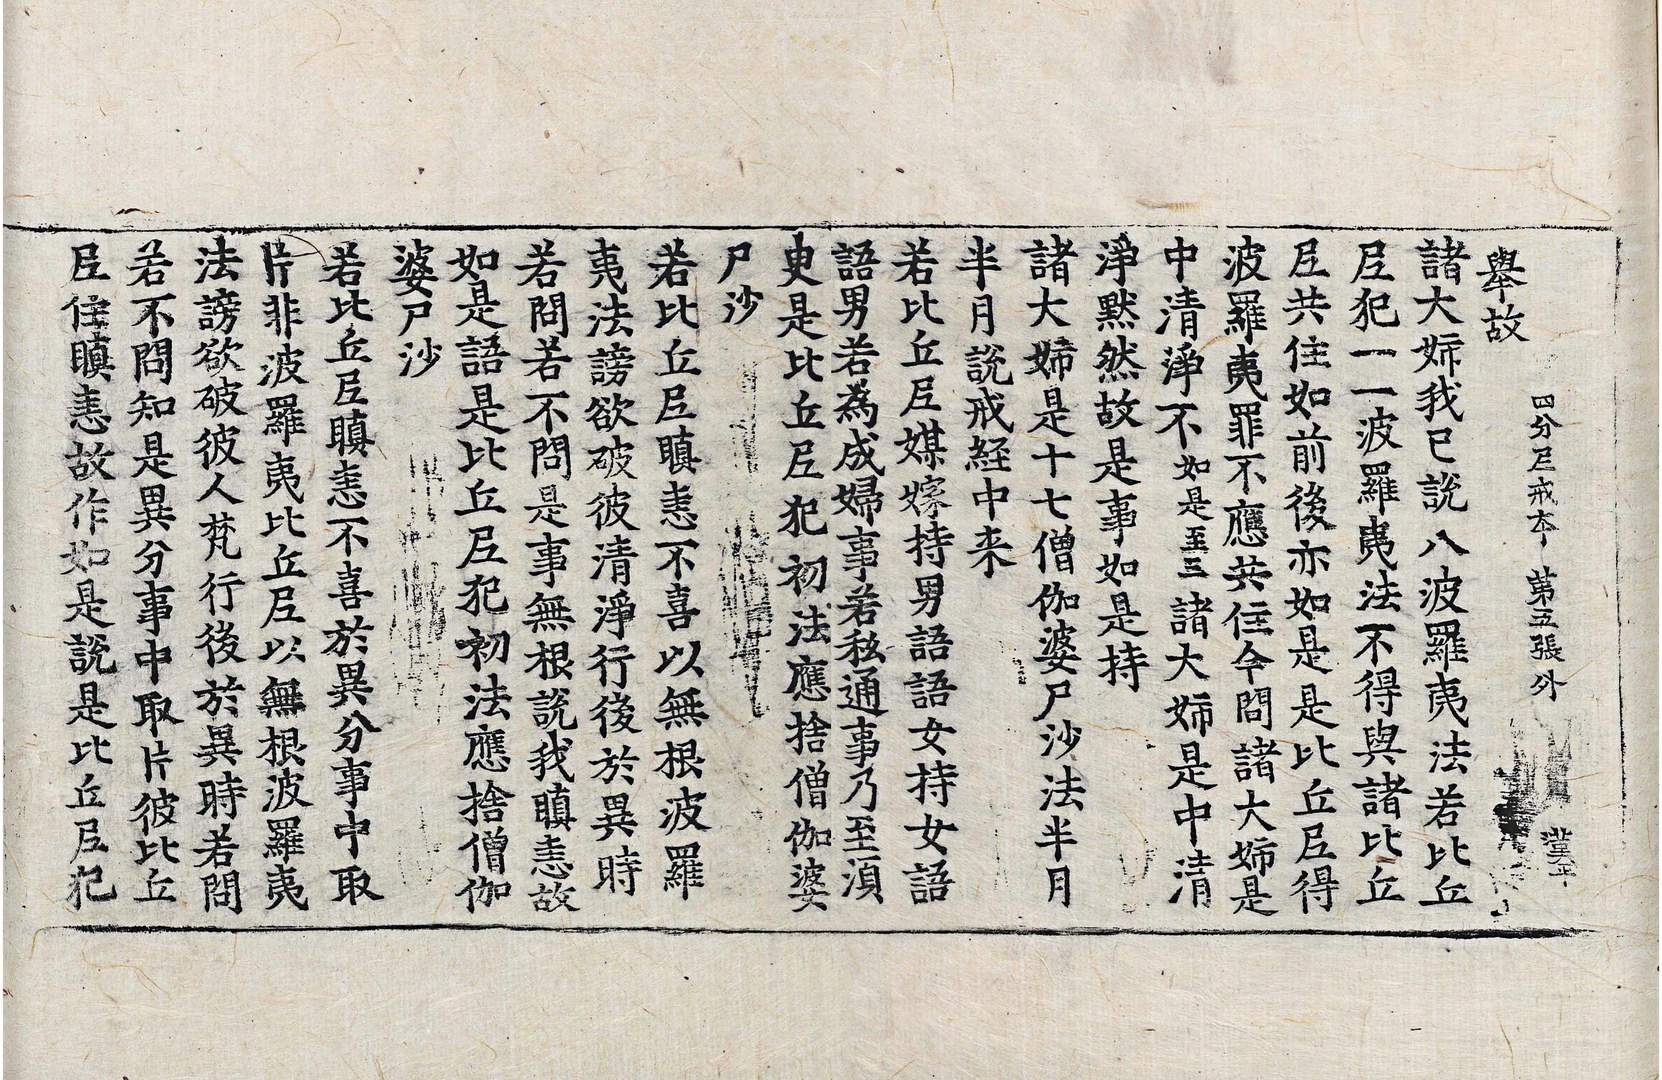 舉故
四分尼戒本 第五張外
諸大姉我已說八波羅夷法若比丘
尼犯一一波羅夷法不得與諸比丘
尼共住如前後亦如是是比丘尼得
波羅夷罪不應共住今問諸大姉是
中清淨不如是至三諸大姉是中清
淨默然故是事如是持
諸大姉是十七僧伽婆尸沙法半月
半月說戒経中来
若比丘尼媒嫁持男語語女持女語
語男若為成婦事若私通事乃至湏
㬰是比丘尼犯初法應捨僧伽婆
尸沙
若比丘尼瞋恚不喜以無根波羅
夷法謗欲破彼清淨行後於異時
若問若不問是事無根說我瞋恚故
如是語是比丘尼犯初法應捨僧伽
婆尸沙
若比丘尼瞋恚不喜於異分事中取
片非波羅夷比丘尼以無根波羅夷
法謗欲破彼人梵行後於異時若問
若不問知是異分事中取片彼比丘
尼住瞋恚故作如是說是比丘尼犯